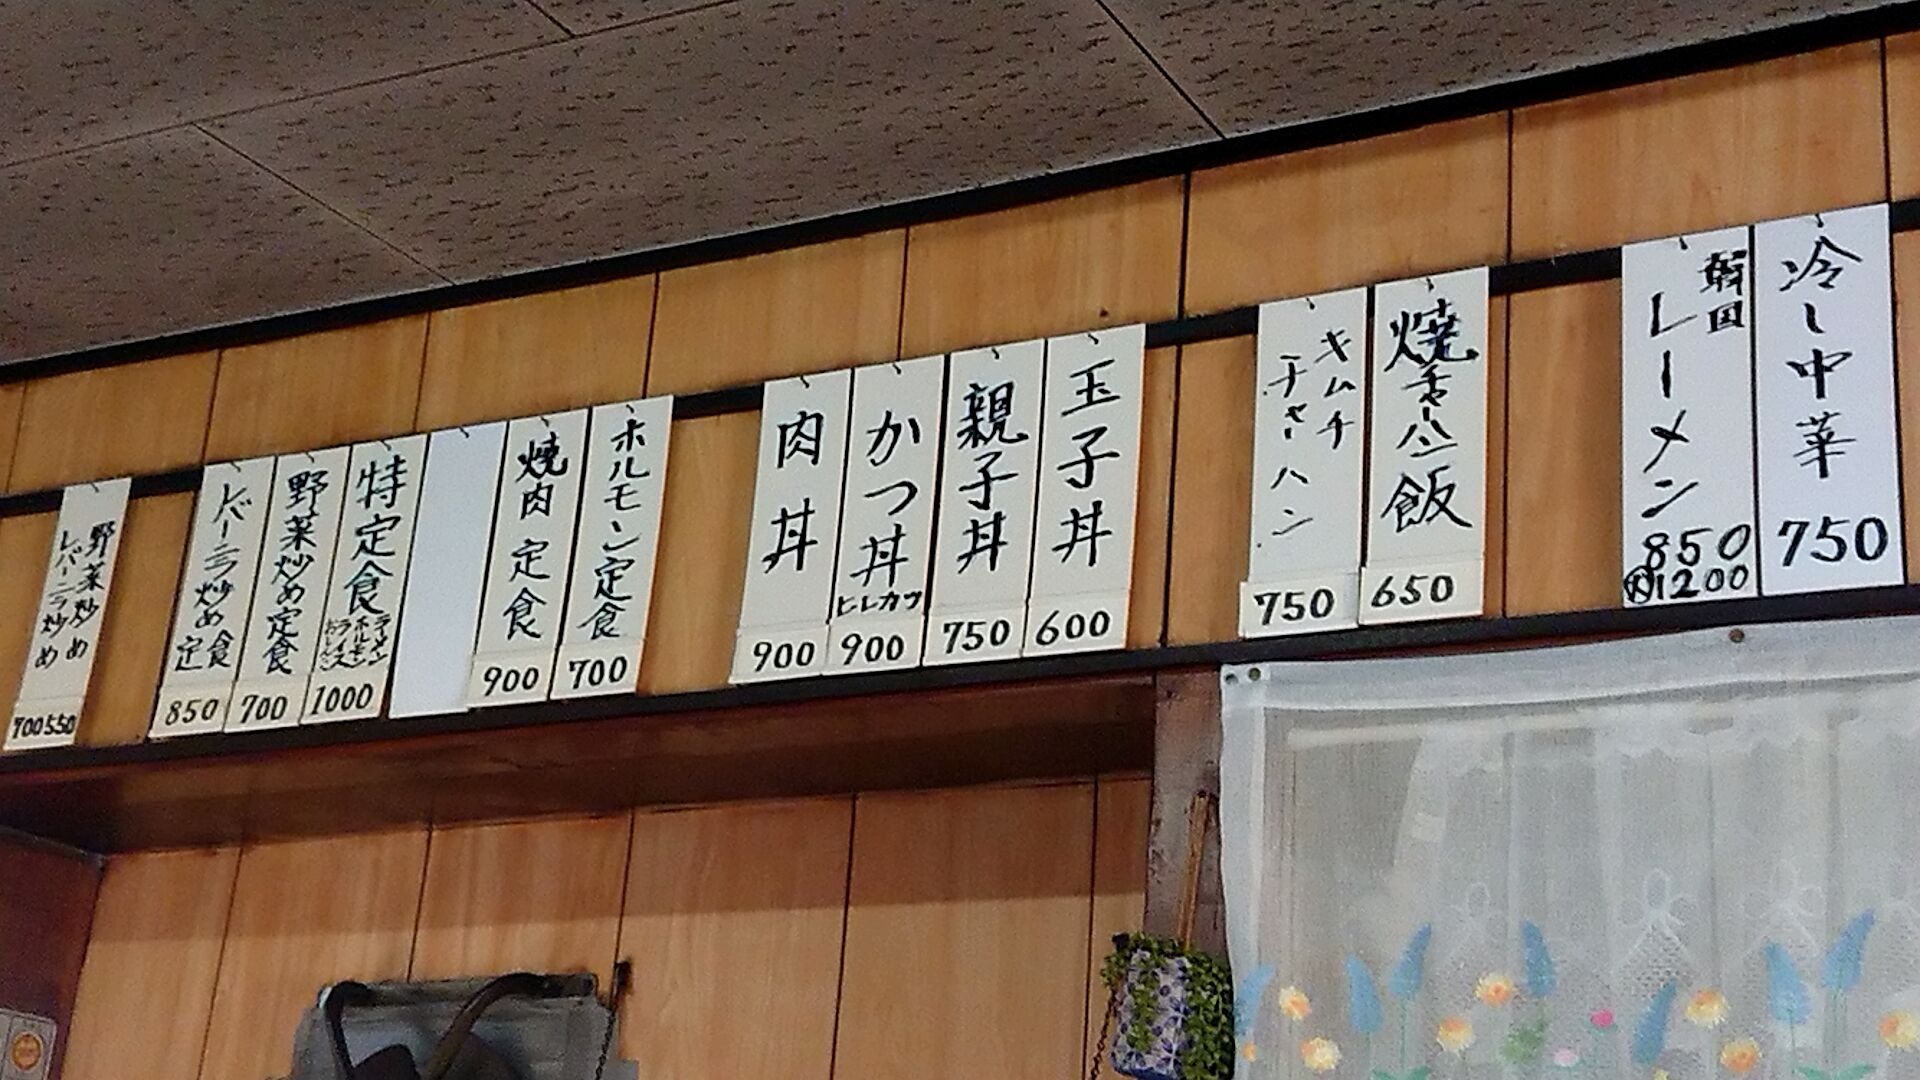 冷し中華
750
韓国
レーメン
850
大1200
焼飯
チャーハン
650
キムチ
チャーハン
750
玉子丼
600
親子丼
750
かつ丼
ヒレカツ
900
肉丼
900
ホルモン定食
700
焼肉定食
900
特定食
ラーメン
ホルモン
ライス
おしんこ
1000
野菜炒め定食
700
レバーニラ炒め定食
850
野菜炒め
レバーニラ炒め
700 550